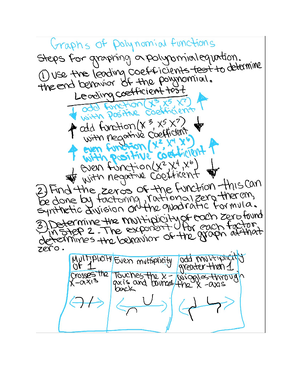 Graphs of polynomial functions
Steps for graphing a polynomial equation.
① use the leading coefficients test to determine
the end behavior of the polynomial.
Leading coefficient test
add function (x³ x⁵ x⁷)
with positive coefficient
add function (x³ x⁵ x⁷)
with negative coefficient
even function (x² x⁴ x⁶)
with positive coefficient
Even function (x² x⁴ x⁶)
with negative coefficient
2) Find the zeros of the function - this can
be done by factoring, rational zero theorm,
synthetic division or the quadratic formula.
3) Determine the multiplicity of each zero found
in step 2. The exponent for each factor
determines the behavior of the graph at that
zero.
Multiplicity
of 1
Even multiplicity
add multiplicity
greater than 1
crosses the
x-axis
Touches the x-
axis and bounces
back
wiggles through
the x-axis